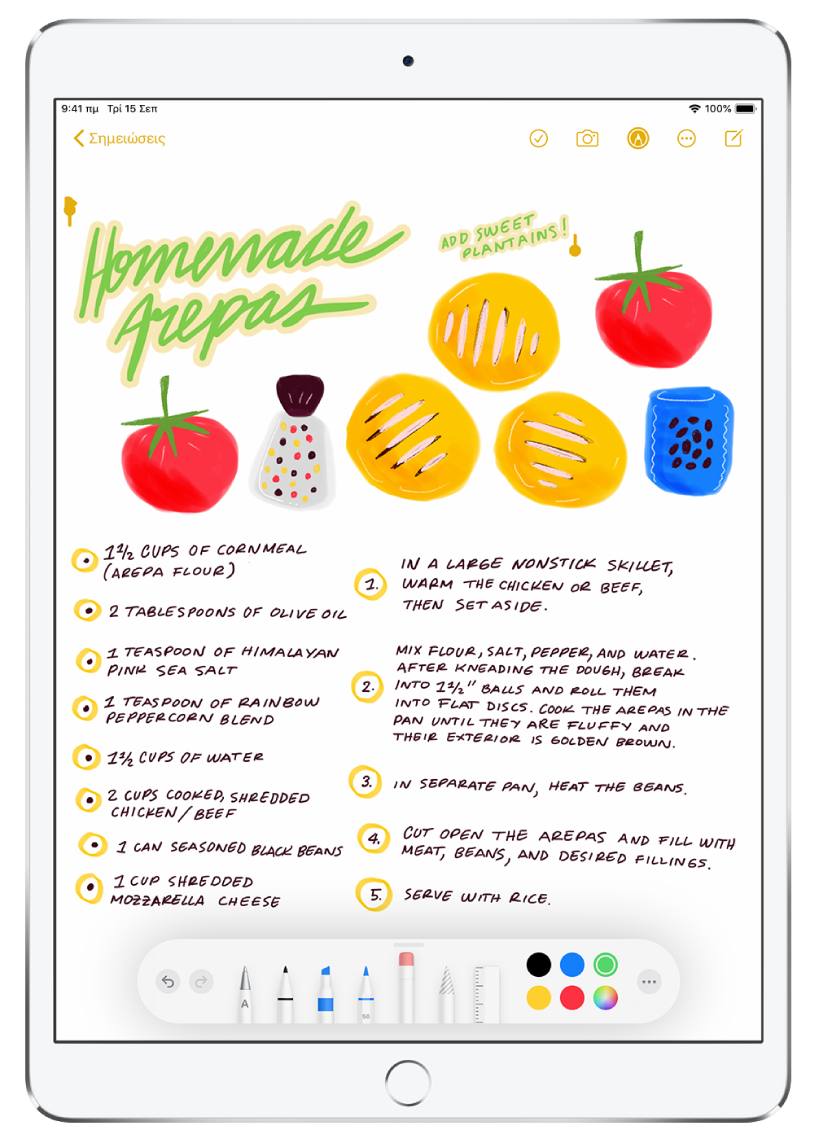 9:41 πμ Τρί 15 Σεπ
100%
Σημειώσεις
Homemade
Arepas
ADD SWEET
PLANTAINS!
1 1/2 CUPS OF CORNMEAL
(AREPA FLOUR)
2 TABLESPOONS OF OLIVE OIL
1 TEASPOON OF HIMALAYAN
PINK SEA SALT
1 TEASPOON OF RAINBOW
PEPPERCORN BLEND
1 1/2 CUPS OF WATER
2 CUPS COOKED, SHREDDED
CHICKEN/BEEF
1 CAN SEASONED BLACK BEANS
1 CUP SHREDDED
MOZZARELLA CHEESE
1. IN A LARGE NONSTICK SKILLET,
WARM THE CHICKEN OR BEEF,
THEN SET ASIDE.
2. MIX FLOUR, SALT, PEPPER, AND WATER.
AFTER KNEADING THE DOUGH, BREAK
INTO 1 1/2" BALLS AND ROLL THEM
INTO FLAT DISCS. COOK THE AREPAS IN THE
PAN UNTIL THEY ARE FLUFFY AND
THEIR EXTERIOR IS GOLDEN BROWN.
3. IN SEPARATE PAN, HEAT THE BEANS.
4. CUT OPEN THE AREPAS AND FILL WITH
MEAT, BEANS, AND DESIRED FILLINGS.
5. SERVE WITH RICE.
A
50